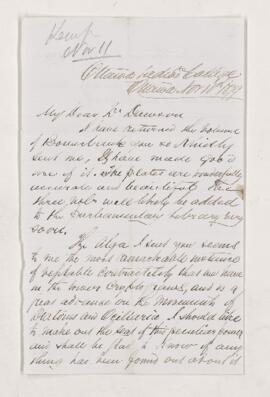 Kemp
Nov 11
Ottawa Ladies College
Ottawa Nov 11th 1879
My Dear Dr Dawson
I have returned the volume
of so kindly
sent me, I have made good
use of it. The plates are wonderfully
accurate and beautiful. The
three vols will be added
to the Parliamentary Library very
soon.
The Alga I send you seems
to me the most remarkable instance
of vegetable contractility that we have
in the lower Cryptogams, and is a
great advance on the movements of
Diatoms and Oscillaria. I should like
to make out the seat of this peculiar power
and shall be glad to know if any
thing has been found out about it